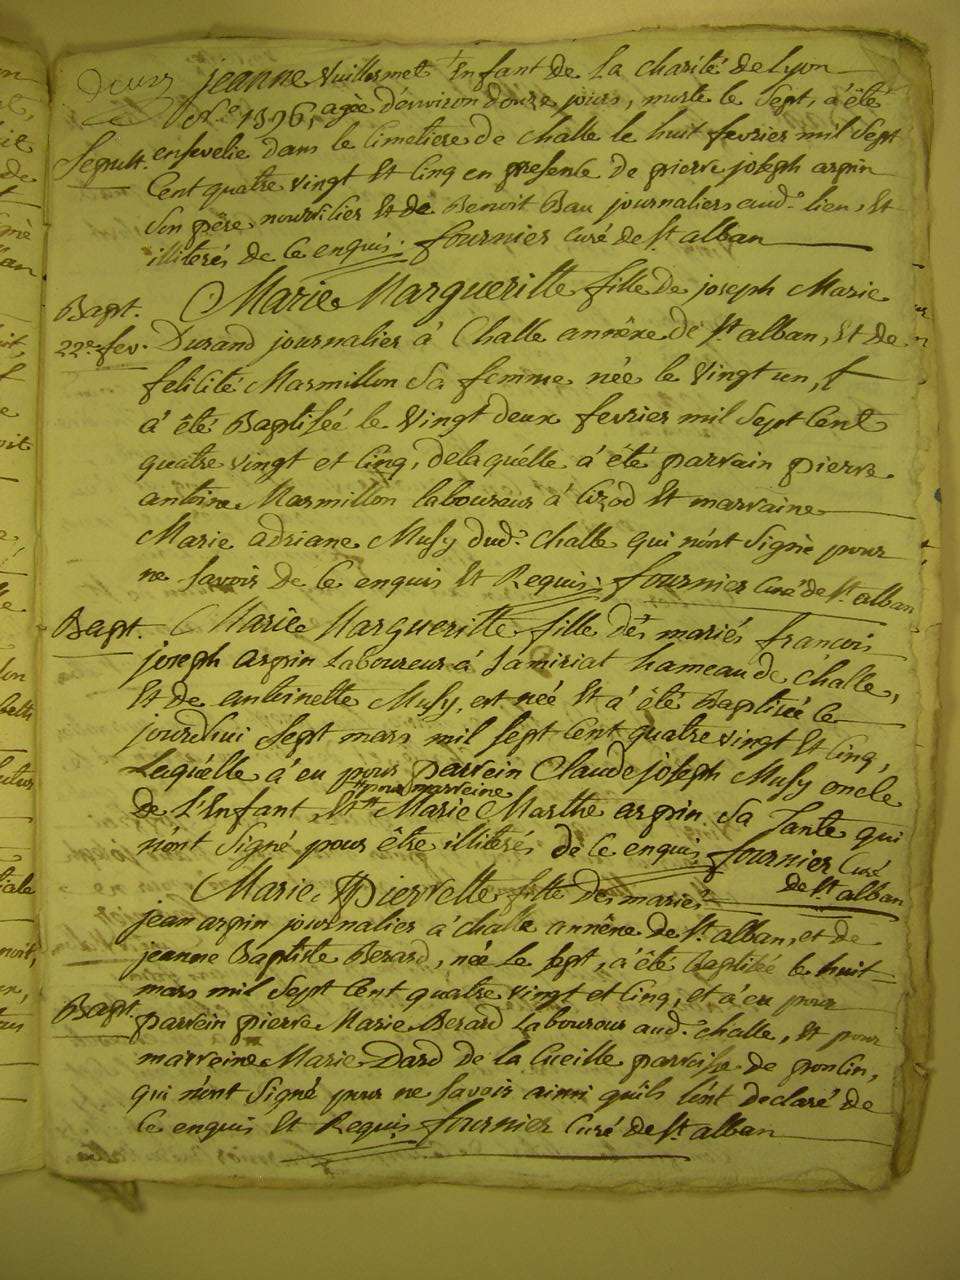 deux
jeanne Vuillermet Enfant de La charité de Lyon
N.o 1396, agée d'environ douze jours, morte le Sept, à été
Sepult. ensevelie dans le Cimetiere de Challe le huit fevrier mil Sept
Cent quatre vingt Et Cinq en presence de pierre joseph arpin
Son père nourricier Et de Benoit Bau journaliers aud.t lieu, Et
illiterés de ce enquis. fournier Curé de St alban
Bapt. Marie Margueritte fille de joseph Marie
22e fev. Durand journalier à Challe annêxe de St alban, Et de
felicité Marmillon Sa femme née le Vingt un,
à été Baptisée le Vingt deux fevrier mil Sept Cent
quatre vingt et Cinq, delaquélle à été parrain pierre
antoine Marmillon laboureur à Cizod Et marraine
Marie adriane Musy dud.t Challe qui n'ont Signé pour
ne Savoir de Ce enquis Et Requis. fournier Curé de St alban
Bapt. Marie Margueritte fille dés mariés françois
joseph arpin Laboureur à Samiriat hameau de Challe,
Et de antoinette Musy, est née Et à été Baptisée Ce
jourdhui Sept mars mil Sept Cent quatre vingt Et Cinq,
Laquélle à eu pour parrein Claude joseph Musy oncle
pour marreine
de L'Enfant, Et Marie Marthe arpin Sa Tante qui
n'ont Signé pour être illiterés de Ce enquis fournier Curé
de St alban
Marie pierrette fille des mariés
jean arpin journalier à Challe annêxe de St alban, et de
jeanne Baptiste Berard, née Le Sept, à été Baptisée le huit
mars mil Sept Cent quatre vingt et Cinq, et à eu pour
Bapt. parrein pierre Marie Berard Laboureur aud.t Challe, Et pour
marreine Marie Dard de la Cueille parroisse de poncin,
qui n'ont Signé pour ne Savoir ainsi qu'ils l'ont declaré de
Ce enquis Et Requis fournier Curé de St alban